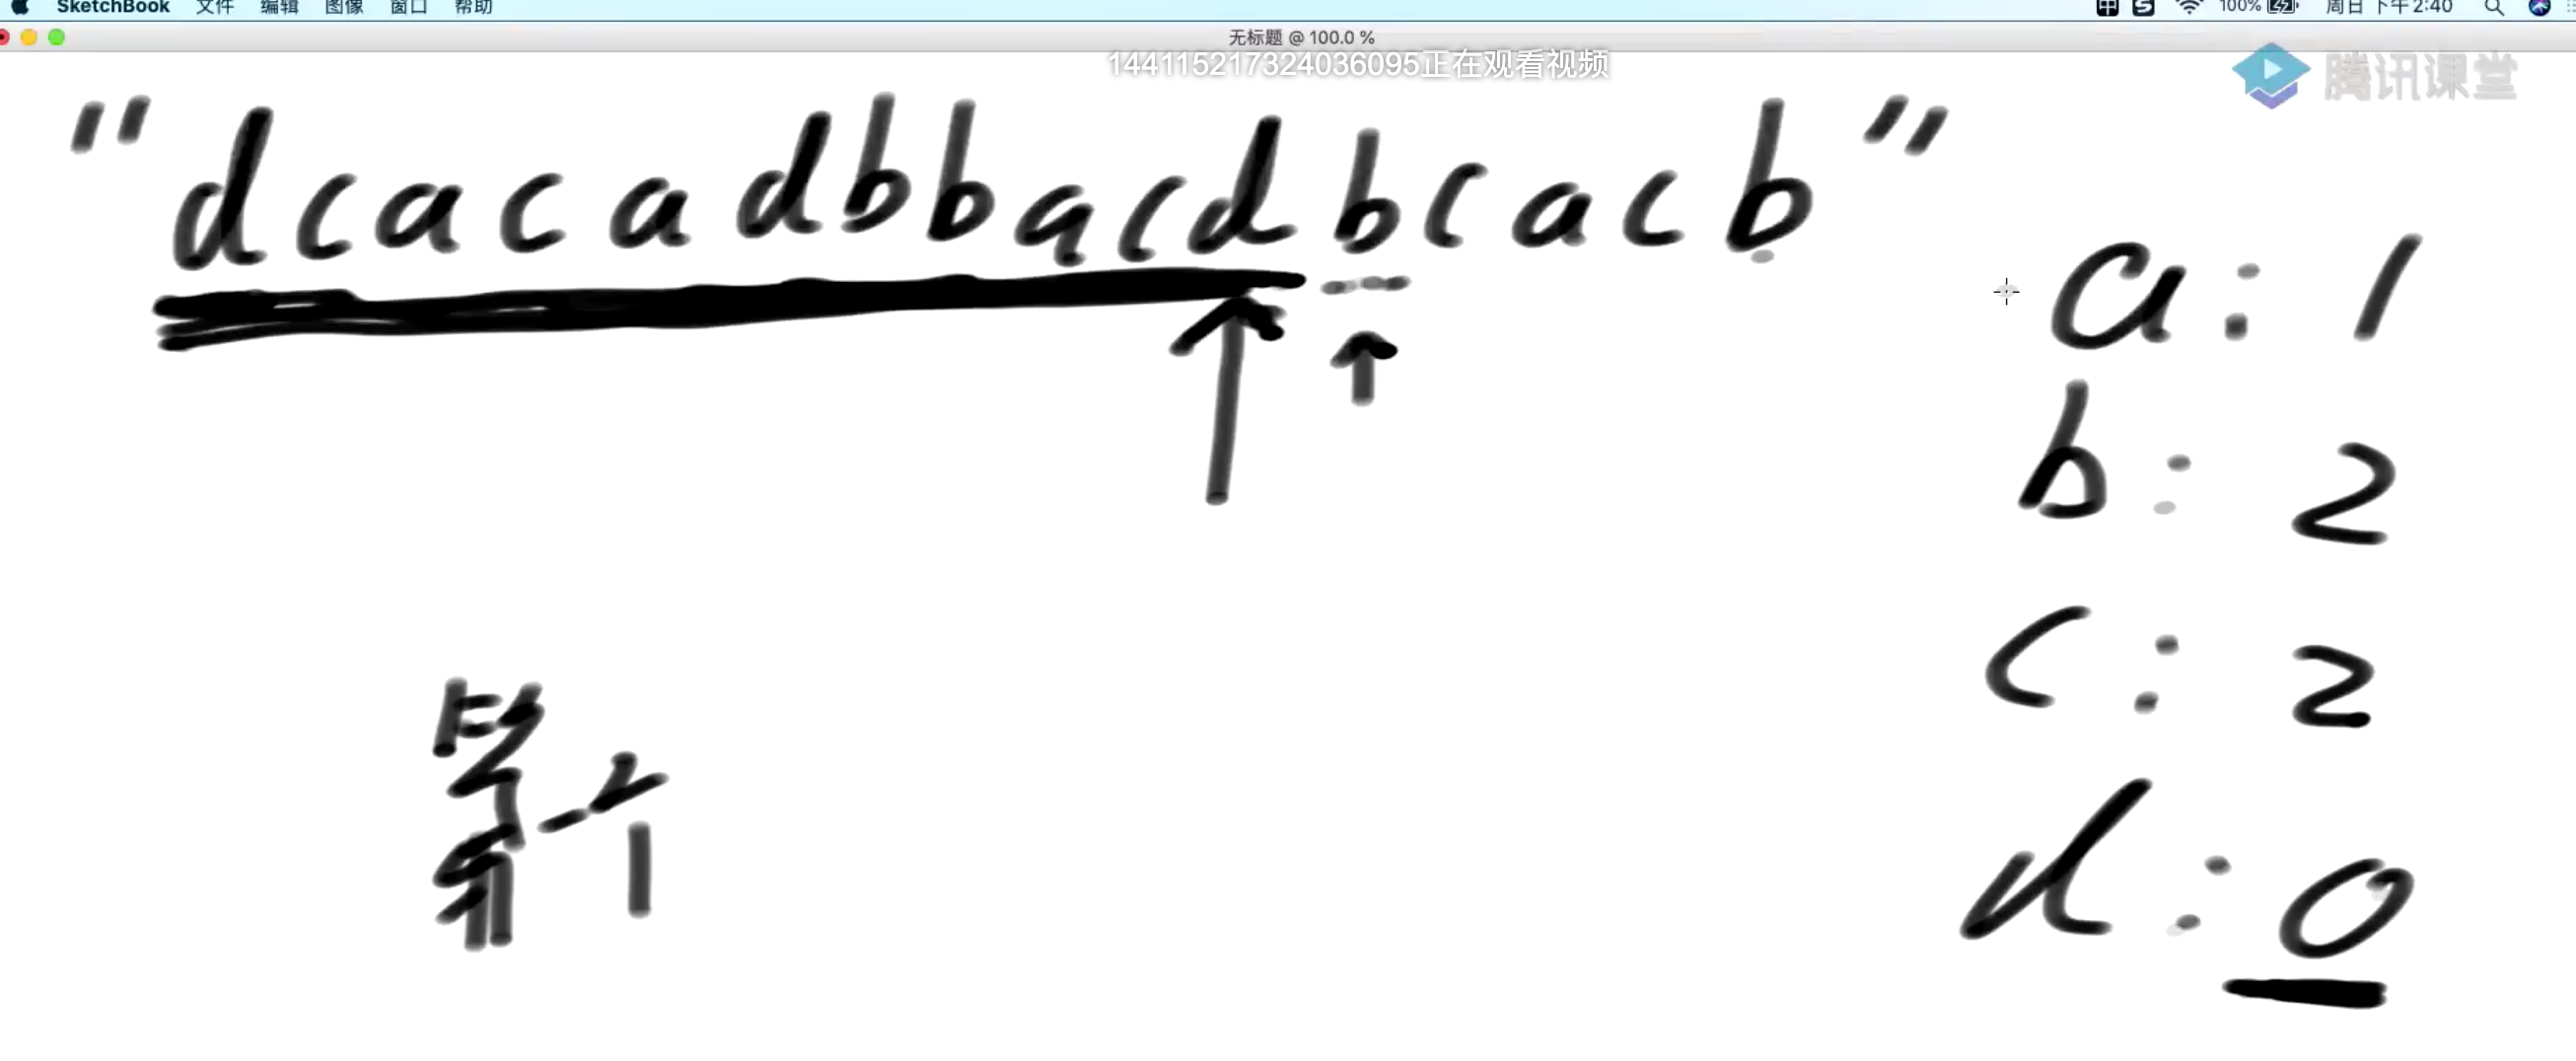 SketchBook 文件 编辑 图像 窗口 帮助 100% 周日 下午2:40
无标题 @ 100.0 %
144115217324036095正在观看视频
腾讯课堂
"dcacadbbacdbcacb"
a: 1
b: 2
c: 2
d: 0